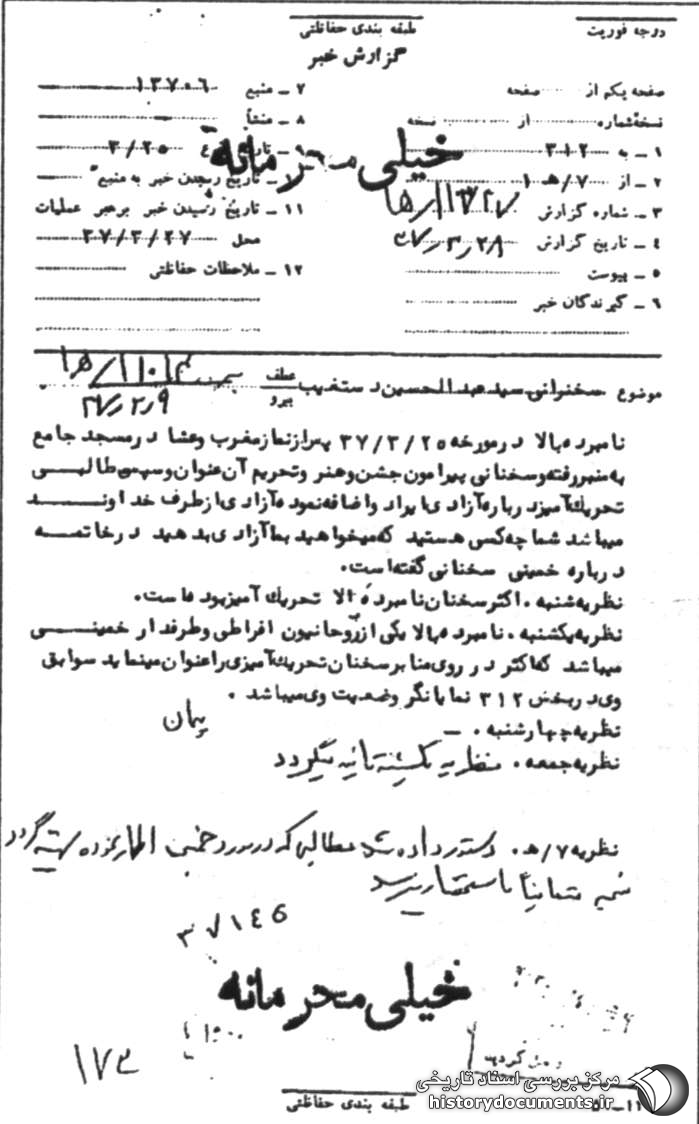 درجه فوریت
طبقه بندی حفاظتی
گزارش خبر
صفحه یکم از صفحه
نسخه‌شماره از نسخه
۱ ـ به ۳۱۲
۲ ـ از ۷/هـ ۱
۳ ـ شماره گزارش
۴ ـ تاریخ گزارش ۳۷٫۳٫۲۸
۵ ـ پیوست
۶ ـ گیرندگان خبر
۷ ـ منبع ۱۳۷۰۶
۸ ـ منشأ
۹ ـ تاریخ ۳/۲۵
۱۰ ـ تاریخ رسیدن خبر به منبع
۱۱ ـ تاریخ رسیدن خبر برهبر عملیات
محل ۳۷/۳/۲۷
۱۲ ـ ملاحظات حفاظتی
خیلی محرمانه
موضوع سخنرانی سید عبدالحسین دستغیب عطف پیرو
۳۷٫۲٫۹
نامبرده بالا در مورخه ۳۷/۳/۲۵ پس از نماز مغرب و عشا در مسجد جامع
به منبر رفته و سخنانی پیرامون جشن و هنر و تحریم آن عنوان و سپس مطالبی
تحریک آمیز درباره آزادی ایراد و اضافه نموده آزادی از طرف خداوند
میباشد شما چه کسی هستید که میخواهید بما آزادی بدهید در خاتمه
درباره خمینی سخنانی گفته است.
نظریه شنبه . اکثر سخنان نامبرده بالا تحریک آمیز بوده است.
نظریه یکشنبه . نامبرده بالا یکی از روحانیون افراطی و طرفدار خمینی
میباشد که اکثر در روی منابر سخنان تحریک آمیزی را عنوان مینماید سوابق
وی در بخش ۳۱۲ نمایانگر وضعیت وی میباشد .
نظریه چهارشنبه . ـ پیمان
نظریه جمعه . نظریه یکشنبه تائید میگردد
نظریه ۷/هـ . دستور داده شد مطالبی که در مورد خمینی اظهار نموده تهیه گردد
۳۷۱۴۵
خیلی محرمانه
۱۷۳
طبقه بندی حفاظتی
۵۰ـ۱۱
مرکز بررسی اسناد تاریخی
historydocuments.ir